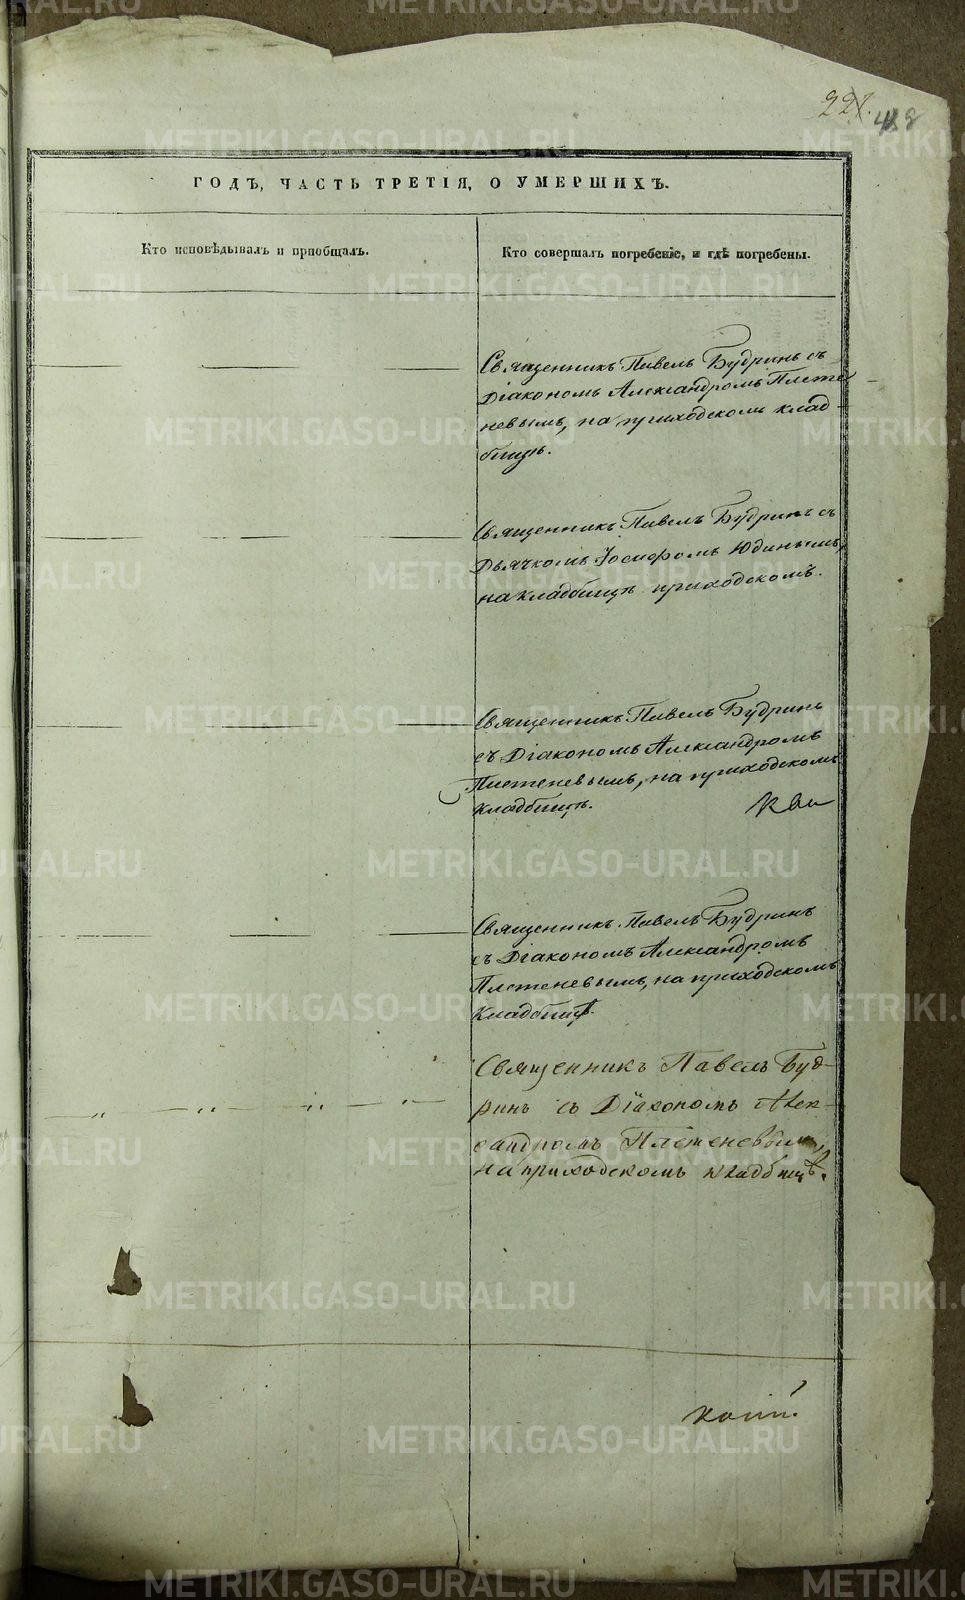 221.
ГОДЪ, ЧАСТЬ ТРЕТІЯ, О УМЕРШИХЪ.
Кто исповѣдывалъ и пріобщалъ.
Кто совершалъ погребеніе, и гдѣ погребены.
Священникъ Павелъ Будринъ съ
Діакономъ Александромъ Плете
невымъ, на приходскомъ клад-
бищѣ.
Священникъ Павелъ Будринъ съ
Дьячкомъ Іосифомъ Юдинымъ,
на кладбищѣ приходскомъ.
Священникъ Павелъ Будринъ
съ Діакономъ Александромъ
Плетеневымъ, на приходскомъ
кладбищѣ.
Священникъ Павелъ Будринъ
съ Діакономъ Александромъ
Плетеневымъ, на приходскомъ
кладбищѣ.
Священникъ Павелъ Буд-
ринъ съ Діакономъ Алек-
сандромъ Плетеневымъ
на приходскомъ кладбищѣ.
METRIKI.GASO-URAL.RU